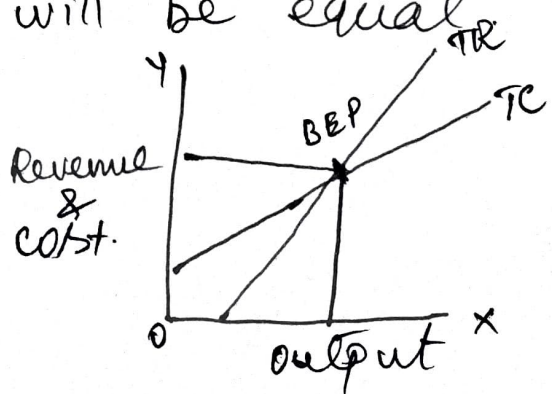 will be equal
TR
Y
TC
BEP
Revenue
&
cost.
O
output
X